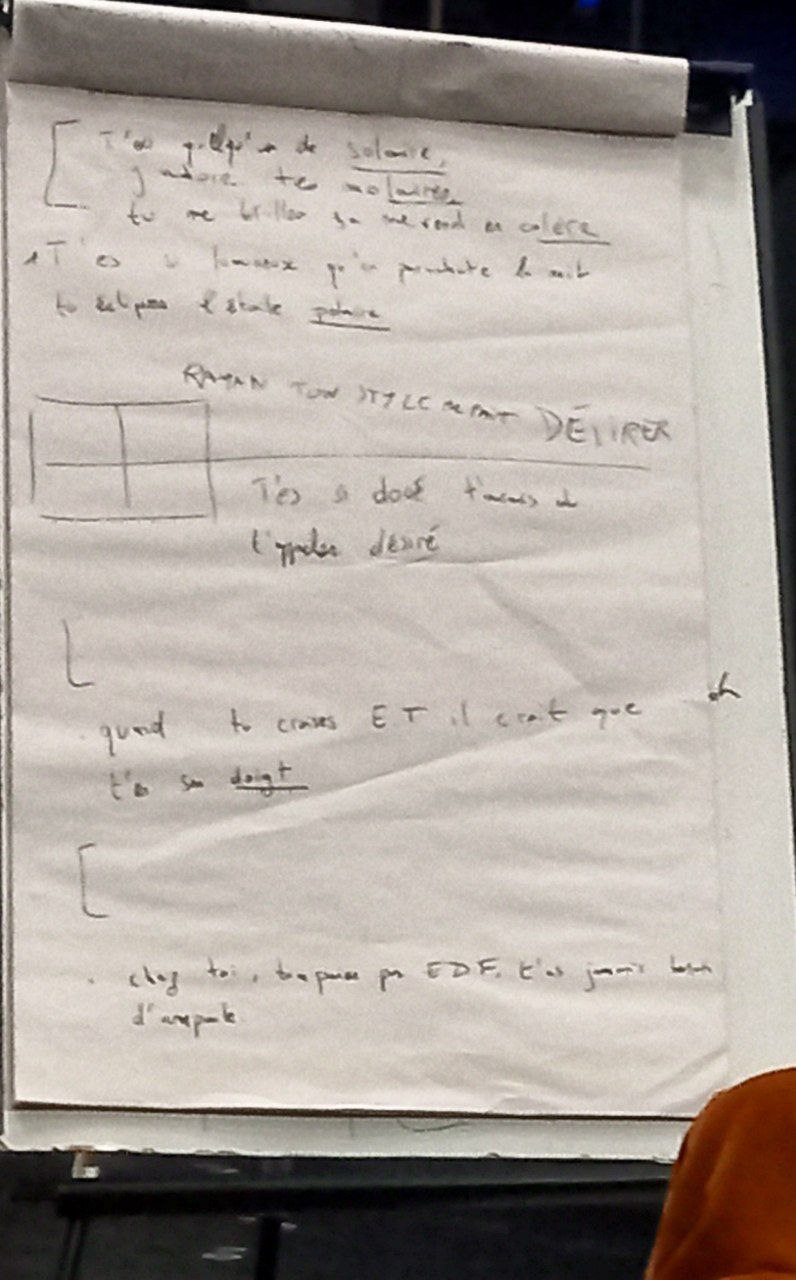 T'es quelqu'un de solaire,
j'adore tes molaires
tu me brilles ça me rend en colère
T'es si lumineux qu'en pendant la nuit
tu éclipses l'étoile polaire
RAYAN TON STYLE ME FAIT DÉLIRER
T'es si doué t'aurais dû
t'appeler désiré
quand tu croises ET il croit que oh
t'es son doigt
chez toi, EDF, t'as jamais besoin
d'ampoule